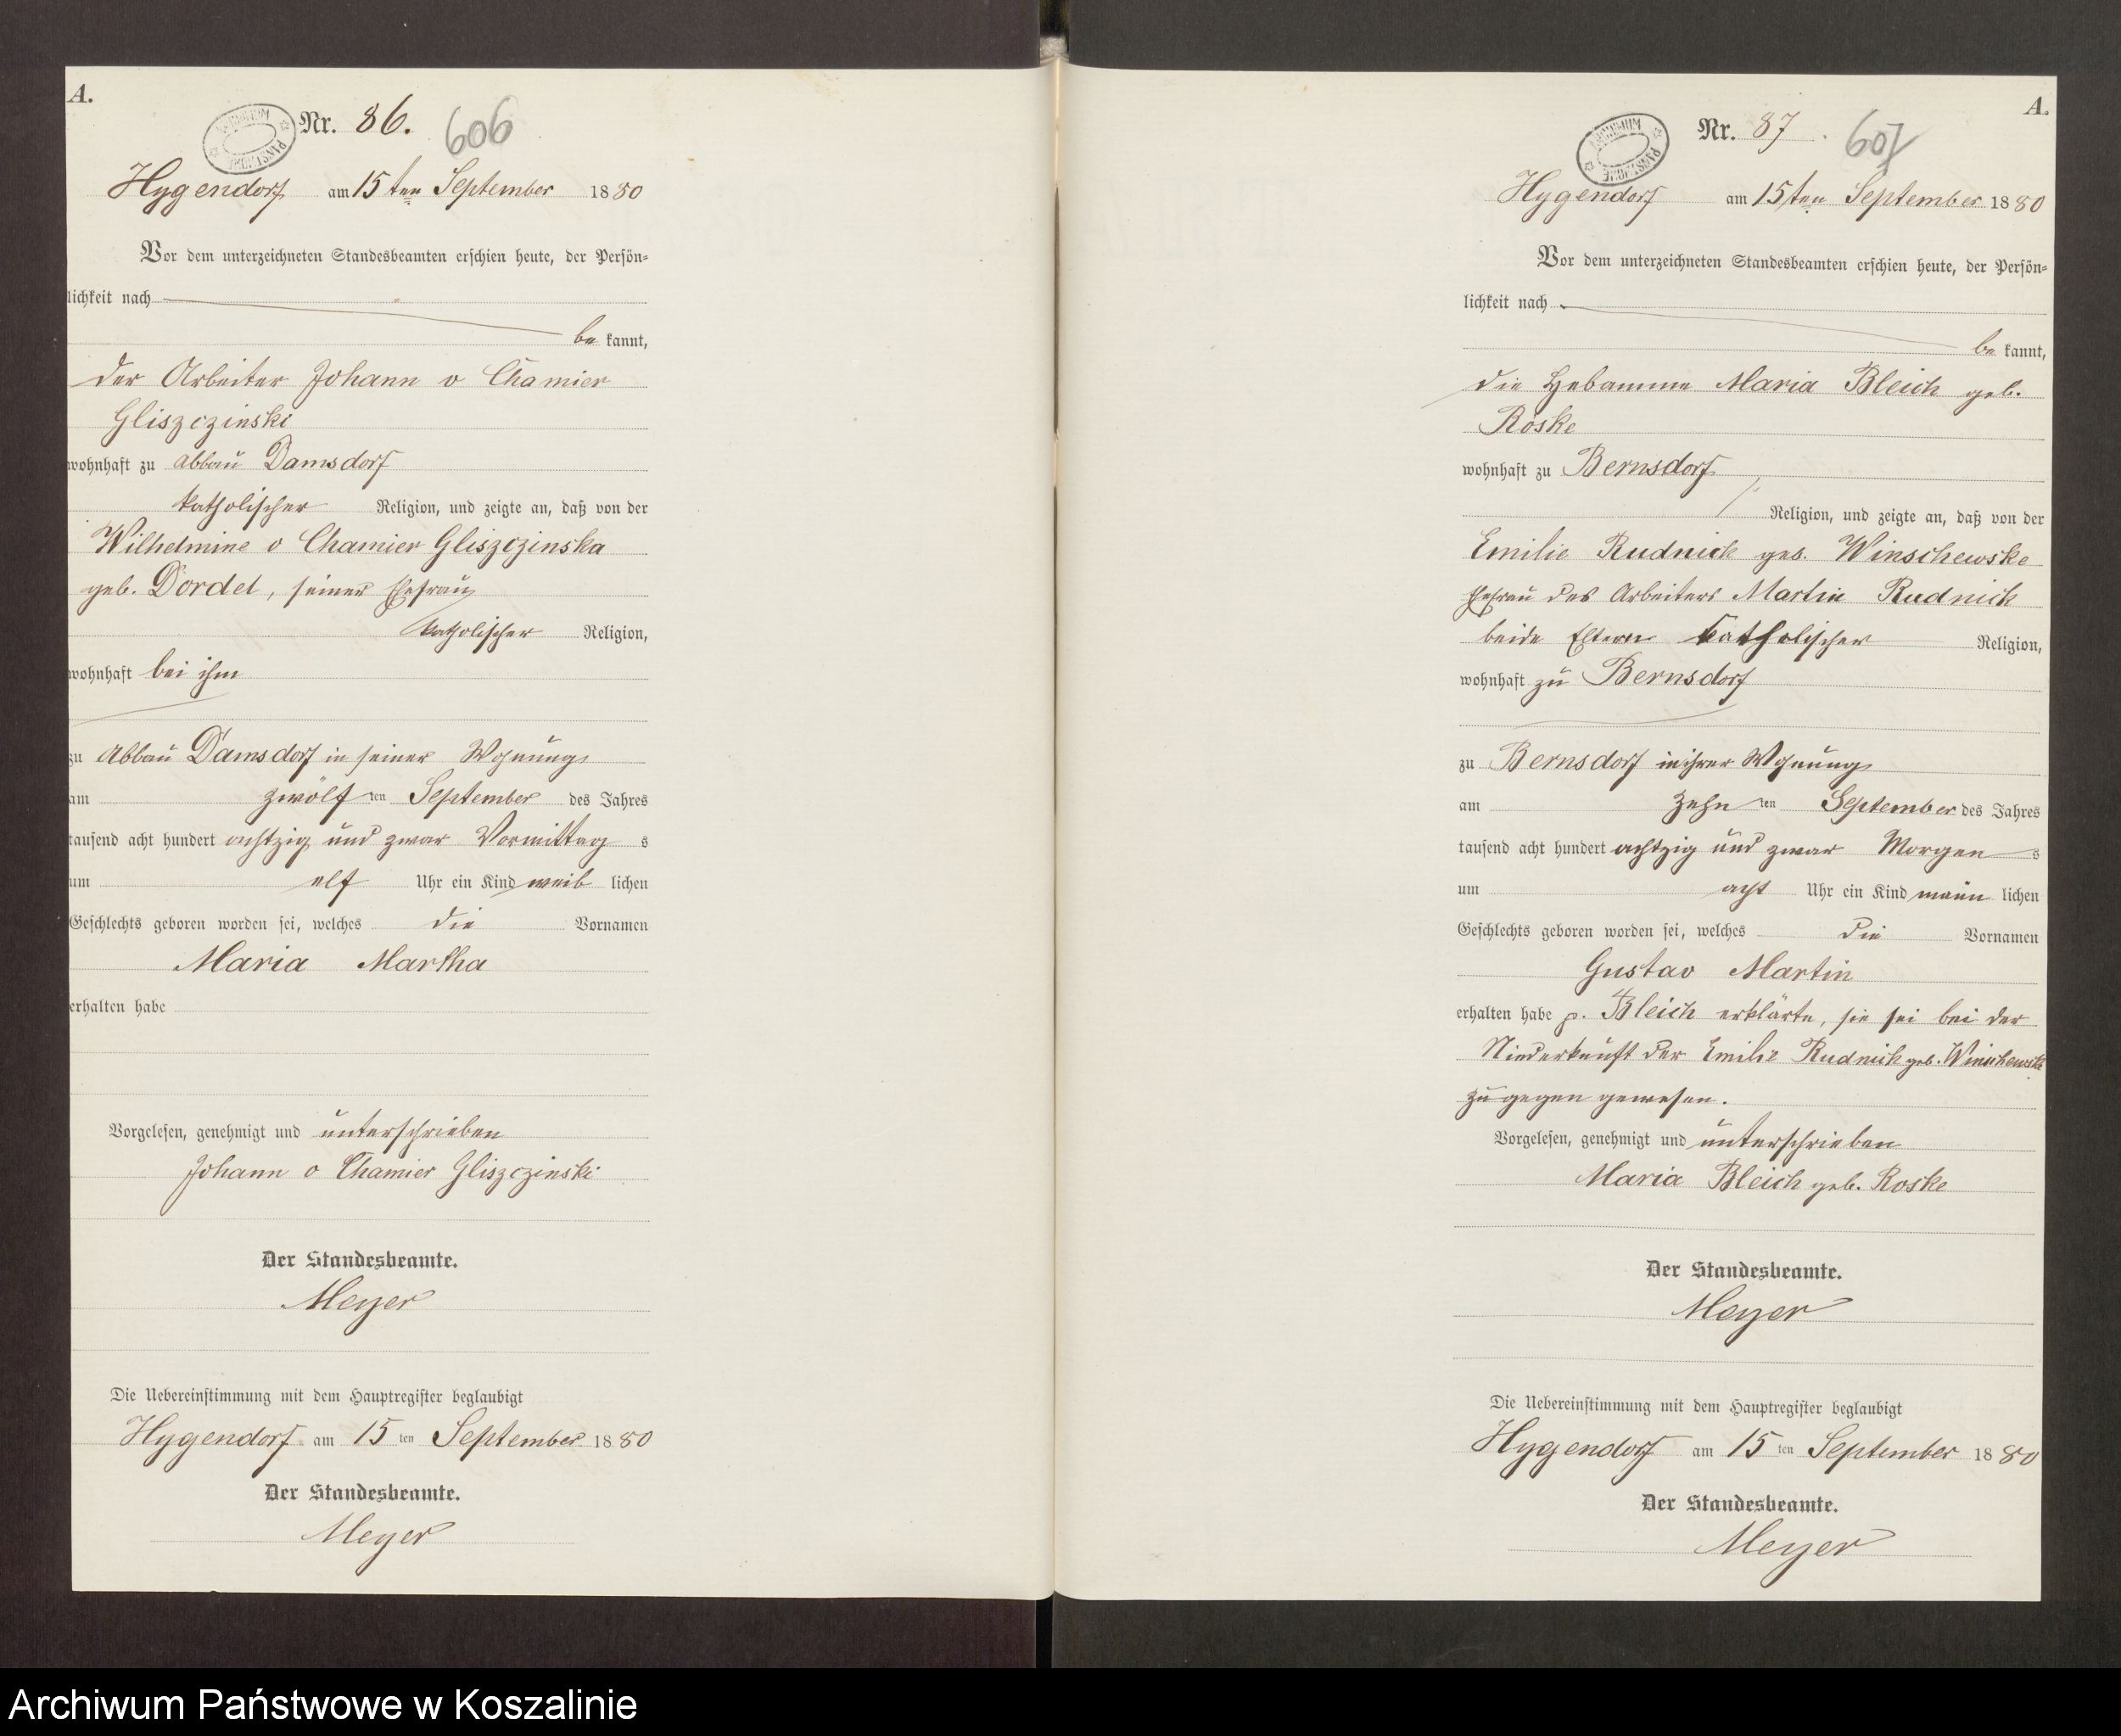 A.
Nr. 86. 606
Hygendorf am 15ten September 1880
Vor dem unterzeichneten Standesbeamten erschien heute, der Persön-
lichkeit nach
be kannt,
der Arbeiter Johann v Chamier
Gliszczinski
wohnhaft zu Abbau Damsdorf
katholischer Religion, und zeigte an, daß von der
Wilhelmine v Chamier Gliszczinska
geb. Dordel, seiner Ehefrau
katholischer Religion,
wohnhaft bei ihm
zu Abbau Damsdorf in seiner Wohnung
am zwölf ten September des Jahres
tausend acht hundert achtzig und zwar Vormittag s
um elf Uhr ein Kind weib lichen
Geschlechts geboren worden sei, welches die Vornamen
Maria Martha
erhalten habe
Vorgelesen, genehmigt und unterschrieben
Johann v Chamier Gliszczinski
Der Standesbeamte.
Meyer
Die Uebereinstimmung mit dem Hauptregister beglaubigt
Hygendorf am 15 ten September 1880
Der Standesbeamte.
Meyer
A.
Nr. 87. 607
Hygendorf am 15ten September 1880
Vor dem unterzeichneten Standesbeamten erschien heute, der Persön-
lichkeit nach
be kannt,
die Hebamme Maria Bleich geb.
Roske
wohnhaft zu Bernsdorf
Religion, und zeigte an, daß von der
Emilie Rudnick geb. Winschewske
Ehefrau des Arbeiters Martin Rudnick
beide Eltern katholischer Religion,
wohnhaft zu Bernsdorf
zu Bernsdorf in ihrer Wohnung
am zehn ten September des Jahres
tausend acht hundert achtzig und zwar Morgen s
um acht Uhr ein Kind männ lichen
Geschlechts geboren worden sei, welches die Vornamen
Gustav Martin
erhalten habe p. Bleich erklärte, sie sei bei der
Niederkunft der Emilie Rudnick geb. Winschewske
zugegen gewesen.
Vorgelesen, genehmigt und unterschrieben
Maria Bleich geb. Roske
Der Standesbeamte.
Meyer
Die Uebereinstimmung mit dem Hauptregister beglaubigt
Hygendorf am 15 ten September 1880
Der Standesbeamte.
Meyer
Archiwum Państwowe w Koszalinie